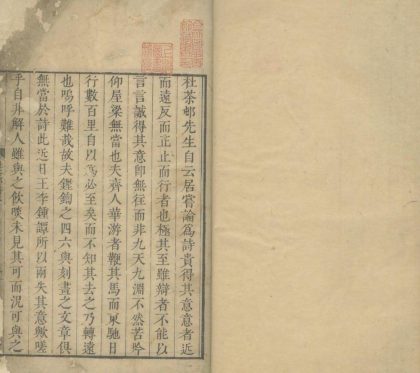 杜茶邨先生自云居嘗論爲詩貴得其意意者近
而遠反而正止而行者也極其至雖辯者不能以
言言誠得其意卽無往而非九天九淵不然苦吟
仰屋梁無當也夫齊人華游者鞭其馬而東馳日
行數百里自以爲必至矣而不知其去之乃轉遠
也嗚呼難哉故夫鏗鍧之四六與刻畫之文章俱
無當於詩此近日王李鍾譚所以兩失其意歟嗟
乎自非解人雖與之飲啖未見其可而況可與之